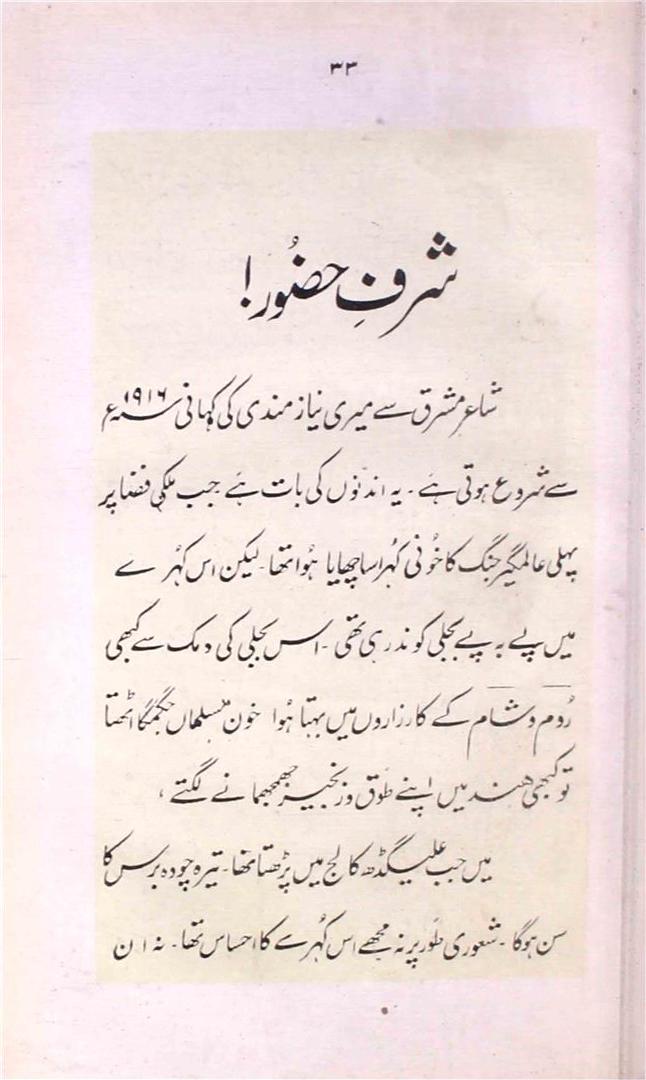 ۳۳
شرفِ حضُور!
شاعرِ مشرق سے میری نیاز مندی کی کہانی ۱۹۱۶ء
سے شروع ہوتی ہَے ۔ یہ اندنّوں کی بات ہَے جب ملکی فضا پر
پہلی عالمگیر جنگ کا خُونی کُہرا سا چھایا ہُوا تھا ۔ لیکن اس کُہرے
میں پَے بہ پَے بجلی کوندر ہی تھی ۔ اس بجلی کی دمک سے کبھی
رُوم و شام کے کارزاروں میں بہتا ہُوا خون مسلماں جگمگا اٹھتا
تو کبھی ہند میں اپنے طَوق و زنجیر جھمجھمانے لگتے ،
میں جب علیگڈھ کالج میں پڑھتا تھا ۔ تیرہ چودہ برس کا
سن ہوگا ۔ شعوری طَور پر نہ مجھے اس کُہرے کا احساس تھا ۔ نہ ان